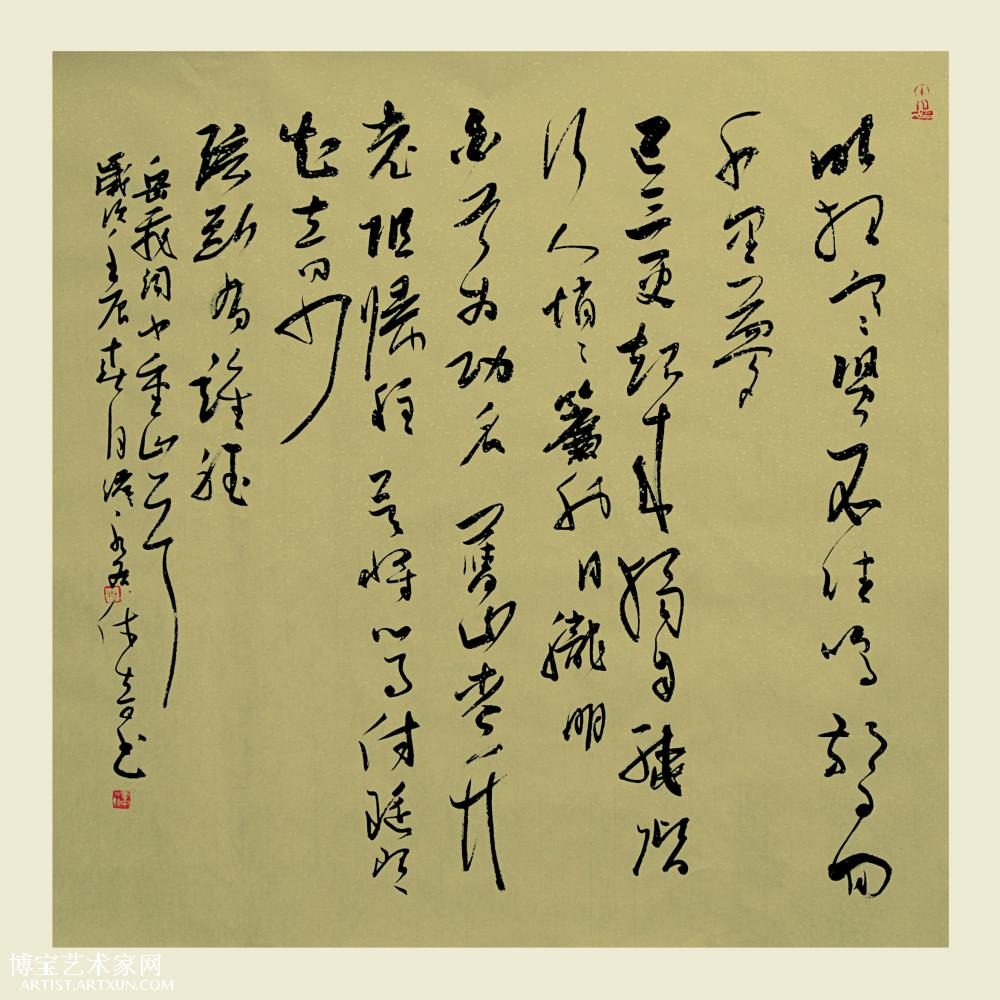 昨夜寒蛩不住鳴驚回
千里夢
已三更起来獨自繞階
行人悄々簾外月朧明
白首为功名舊山松竹
老阻歸程欲將心事付瑶琴
知音少
弦斷有誰聽
岳飛詞小重山
歲次壬辰春月 书
博宝艺术家网
ARTIST.ARTXUN.COM